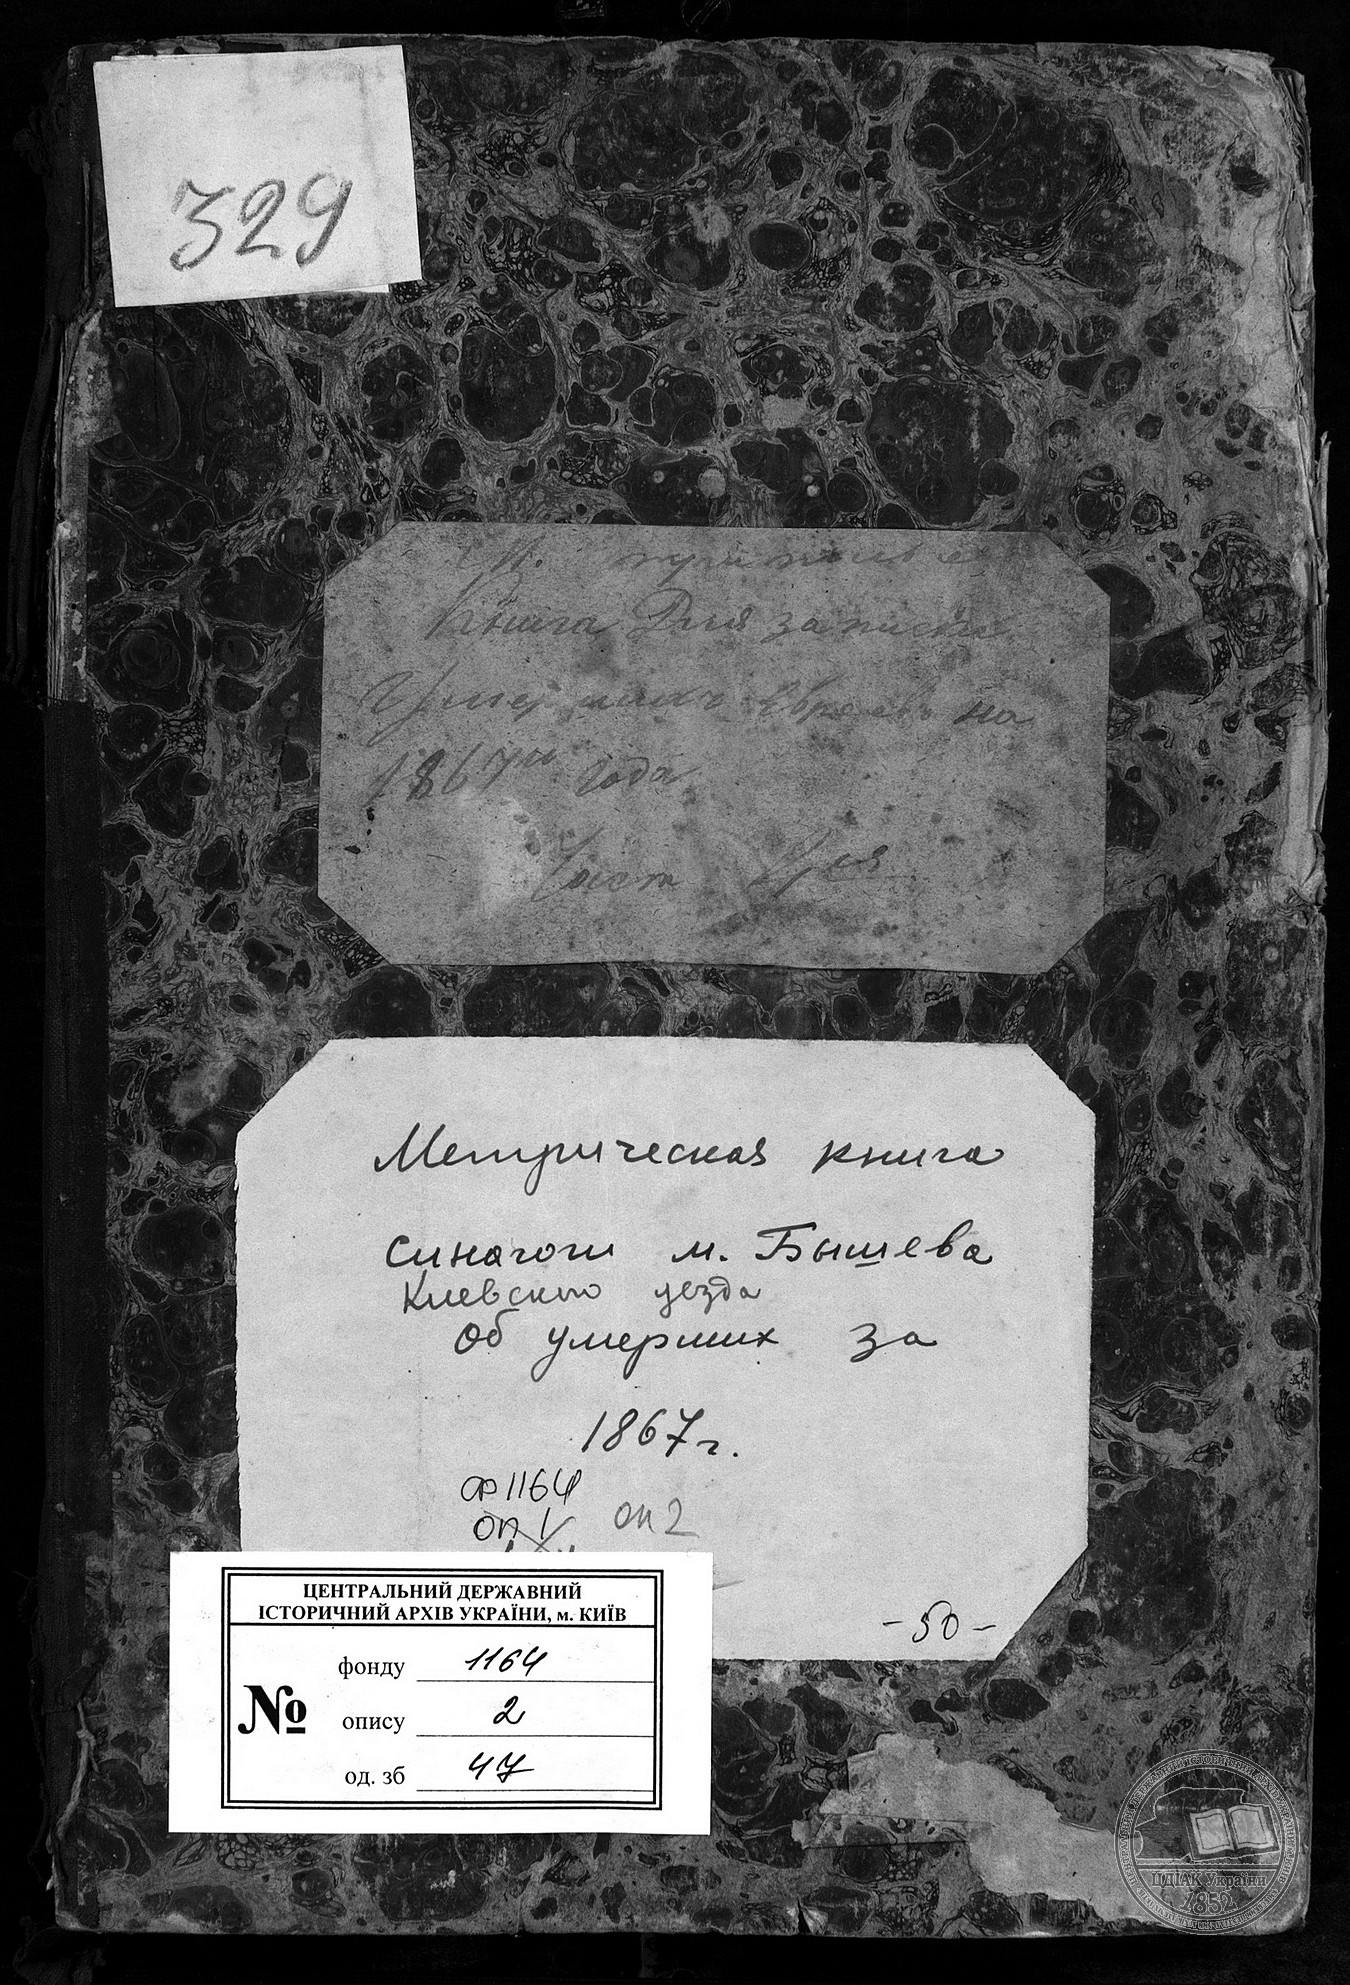 329
Книга Для записки
Умершихъ Евреевъ на
1867го года
Част
Метрическая книга
синагоги м. Бышева
Киевского уезда
Об умерших за
1867 г.
ф 1164
оп 1 оп 2
-50-
ЦЕНТРАЛЬНИЙ ДЕРЖАВНИЙ
ІСТОРИЧНИЙ АРХІВ УКРАЇНИ, м. КИЇВ
фонду 1164
№ опису 2
од. зб 47
ЦДІАК України
1852